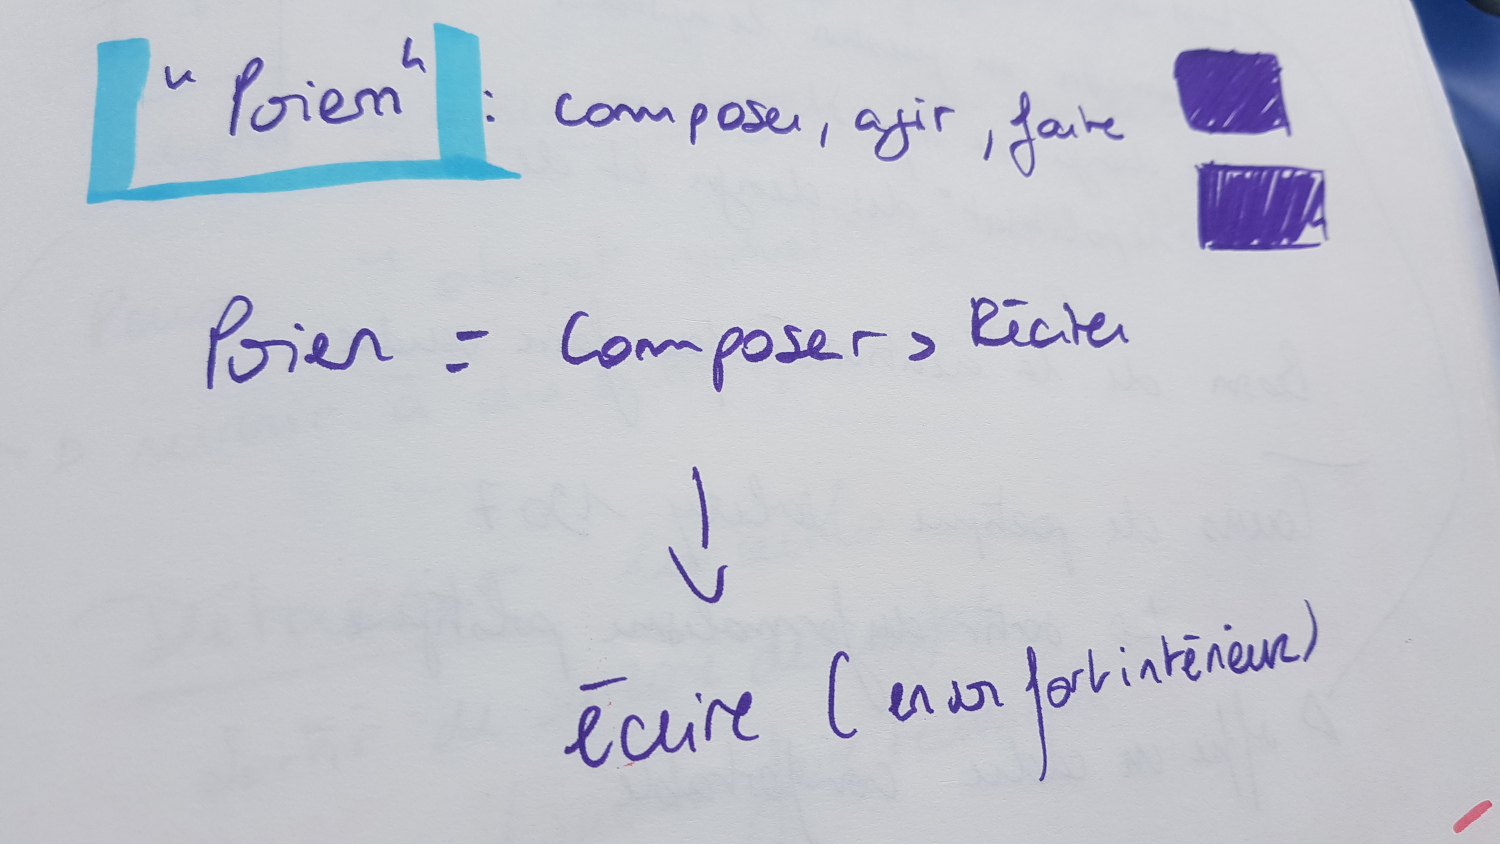 "Poiem" : composer, agir, faire
Poien = Composer > Réciter
écrire (en son fort intérieur)